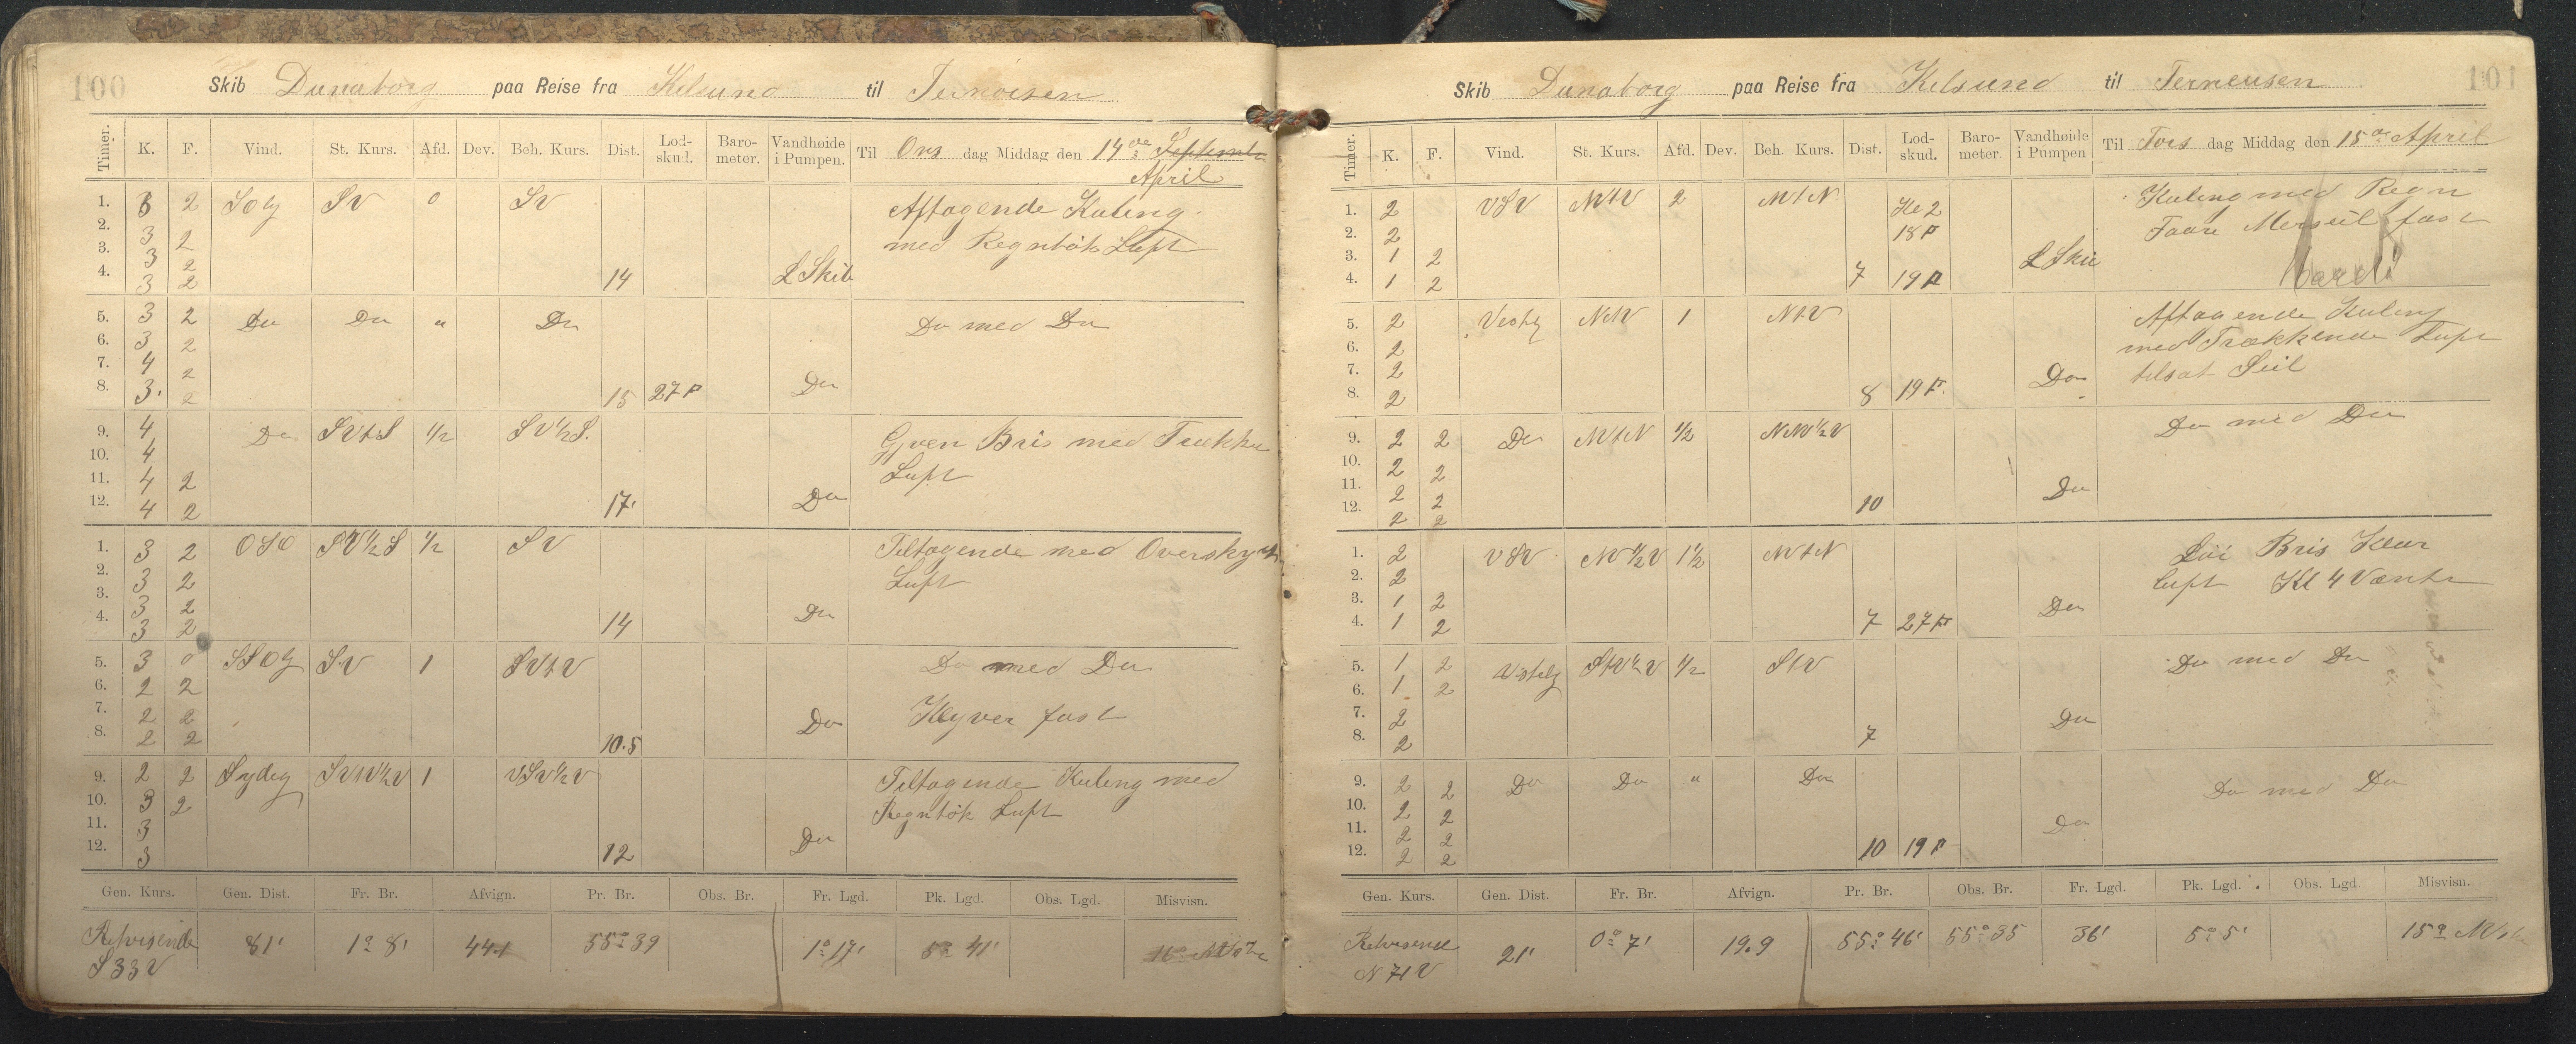 100
Skib Dunaborg paa Reise fra Kilsund til Ternoisen
Timer. K. F. Vind. St. Kurs. Afd. Dev. Beh. Kurs. Dist. Lod-skud. Baro-meter. Vandhøide i Pumpen. Til Ons dag Middag den 14de September
April
1. 3 2 SOlg SV 0 SV Aftagende Kuling
2. 3 2 med Regntök Luft
3. 3 2
4. 3 2 14 L Skib
5. 3 2 Do Do " Do Do med Do
6. 3 2
7. 4 2
8. 3. 2 15 27 F Do
9. 4 Do SVtS 1/2 SV 1/2 S. Gjven Bris med Trække
10. 4 Luft
11. 4 2
12. 4 2 17' Do
1. 3 2 OSO SV 1/2 S 1/2 SV Tiltagende med Overskyet
2. 3 2 Luft
3. 3 2
4. 3 2 14 Do
5. 3 0 SSOlg SV 1 SVtV Do med Do
6. 2 2
7. 2 2 Klyver fast
8. 2 2 10.5 Do
9. 2 2 Sydlig SVtV 1/2 V 1 VSV 1/2 V Tiltagende Kuling med
10. 3 2 Regntök Luft
11. 3
12. 3 12 Do
Gen. Kurs. Gen. Dist. Fr. Br. Afvign. Pr. Br. Obs. Br. Fr. Lgd. Pk. Lgd. Obs. Lgd. Misvisn.
Retvisende 81' 1° 8' 44.1 55° 39 1° 17' 5° 41' 16°
S 33 V
101
Skib Dunaborg paa Reise fra Kilsund til Terneusen
Timer. K. F. Vind. St. Kurs. Afd. Dev. Beh. Kurs. Dist. Lod-skud. Baro-meter. Vandhøide i Pumpen Til Tors dag Middag den 15de April
1. 2 VSV NVtV 2 NVtN Kl 2 Kuling med Regn
2. 2 18 F Taare Merseil fast
3. 1 2
4. 1 2 7 19 F L Skib
5. 2 Vestlg NtV 1 NtV Aftagende Kuling
6. 2 med Trækkende Luft
7. 2 tilsat Seil
8. 2 8 19 F Do
9. 2 2 Do NVtN 1/2 NNV 1/2 V Do med Do
10. 2 2
11. 2 2
12. 2 2 10 Do
1. 2 VSV NV 1/2 V 1 1/2 NVtN Löi Bris Klar
2. 2 luft Kl 4 Vænte
3. 1 2
4. 1 2 7 27 F Do
5. 1 2 Vestelg StV 1/2 V 1/2 StV Do med Do
6. 1 2
7. 2
8. 2 7 Do
9. 2 2 Do Do " Do Do med Do
10. 2 2
11. 2 2
12. 2 2 10 19 F Do
Gen. Kurs. Gen. Dist. Fr. Br. Afvign. Pr. Br. Obs. Br. Fr. Lgd. Pk. Lgd. Obs. Lgd Misvisn.
Retvisende 21' 0° 7' 19.9 55° 46' 55° 35 36' 5° 5' 15°
N 71 V